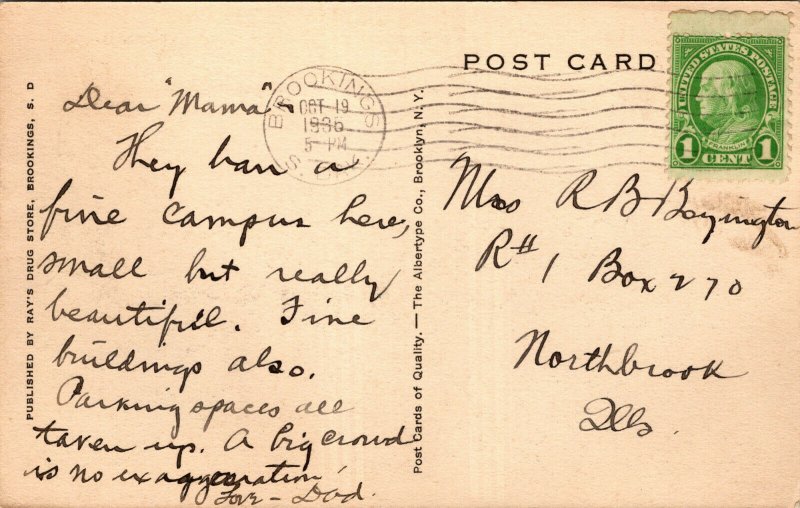 POST CARD
UNITED STATES POSTAGE
FRANKLIN
1 CENT 1
BROOKINGS
OCT 19
1936
5 - PM
S. DAK.
Dear "Mama"-
They have a
fine campus here,
small but really
beautiful. Fine
buildings also.
Parking spaces all
taken up. A big crowd
is no exaggeration,
Love - Dad.
Mrs R B Boyington
R# 1 Box 270
Northbrook
Ills.
PUBLISHED BY RAY'S DRUG STORE, BROOKINGS, S. D
Post Cards of Quality. — The Albertype Co., Brooklyn, N. Y.